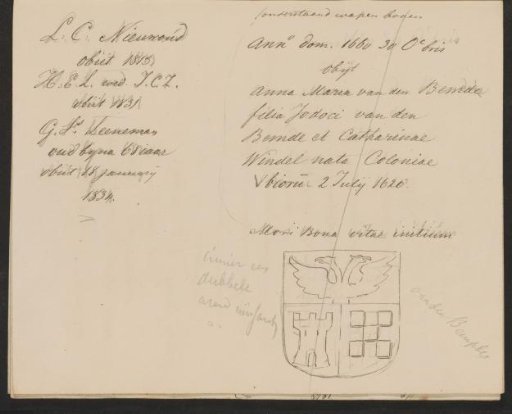 L. C. Nieuwond
obiit 1815
H. E. L. cond J. C. Z.
obiit 1831
G. Ls Veeneman
oud byna 68 jaar
obiit 28 january
1834.
onderstaand wapen boven
Ann° dom. 1660 30 8bris
obijt
Anna Maria van den Bemde
filia Jodoci van den
Bemde et Catharinae
Windel nata Coloniae
Vbiorū 2 July 1620
Mori Bona vitae initium
immer een
dubbele
arend
van den